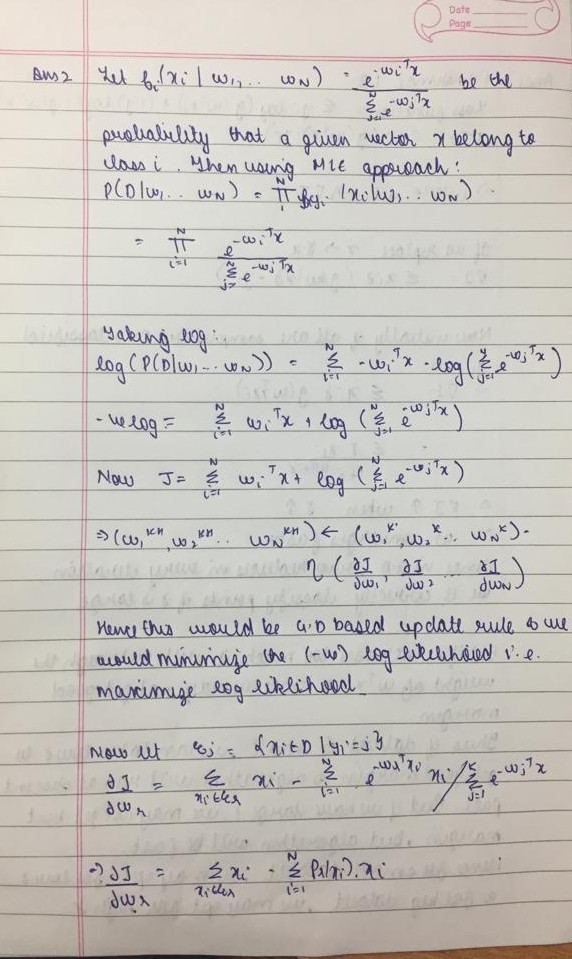 Date
Page
Ans2 Let f_i(x_i | w_1, .. w_N) = e^{-w_i^T x} / Σ_{j=1}^{N} e^{-w_j^T x} be the
probability that a given vector x belong to
class i. Then using MLE approach:
P(D|w_1 .. w_N) = Π_1^N f_{y_i} (x_i|w_1 .. w_N)
= Π_{i=1}^{N} e^{-w_i^T x} / Σ_{j=}^{N} e^{-w_j^T x}
Taking log:
log(P(D|w_1 .. w_N)) = Σ_{i=1}^{N} -w_i^T x - log(Σ_{j=1}^{N} e^{-w_j^T x})
-ve log = Σ_{i=1}^{N} w_i^T x + log (Σ_{j=1}^{N} e^{-w_j^T x})
Now J = Σ_{i=1}^{N} w_i^T x + log (Σ_{j=1}^{N} e^{-w_j^T x})
⇒ (w_1^{k+1}, w_2^{k+1} .. w_N^{k+1}) ← (w_1^k, w_2^k .. w_N^k) -
η (∂J/∂w_1, ∂J/∂w_2 ... ∂J/∂w_N)
Hence this would be G.D based update rule as we
would minimize the (-ve) log likelihood i.e.
maximize log liklihood.
Now let c_j = {x_i ∈ D | y_i = j}
∂J/∂w_r = Σ_{x_i ∈ c_r} x_i - Σ_{i=1}^{N} e^{-w_r^T x_i} x_i / Σ_{j=1}^{k} e^{-w_j^T x}
⇒ ∂J/∂w_r = Σ_{x_i ∈ c_r} x_i - Σ_{i=1}^{N} P_r(x_i). x_i